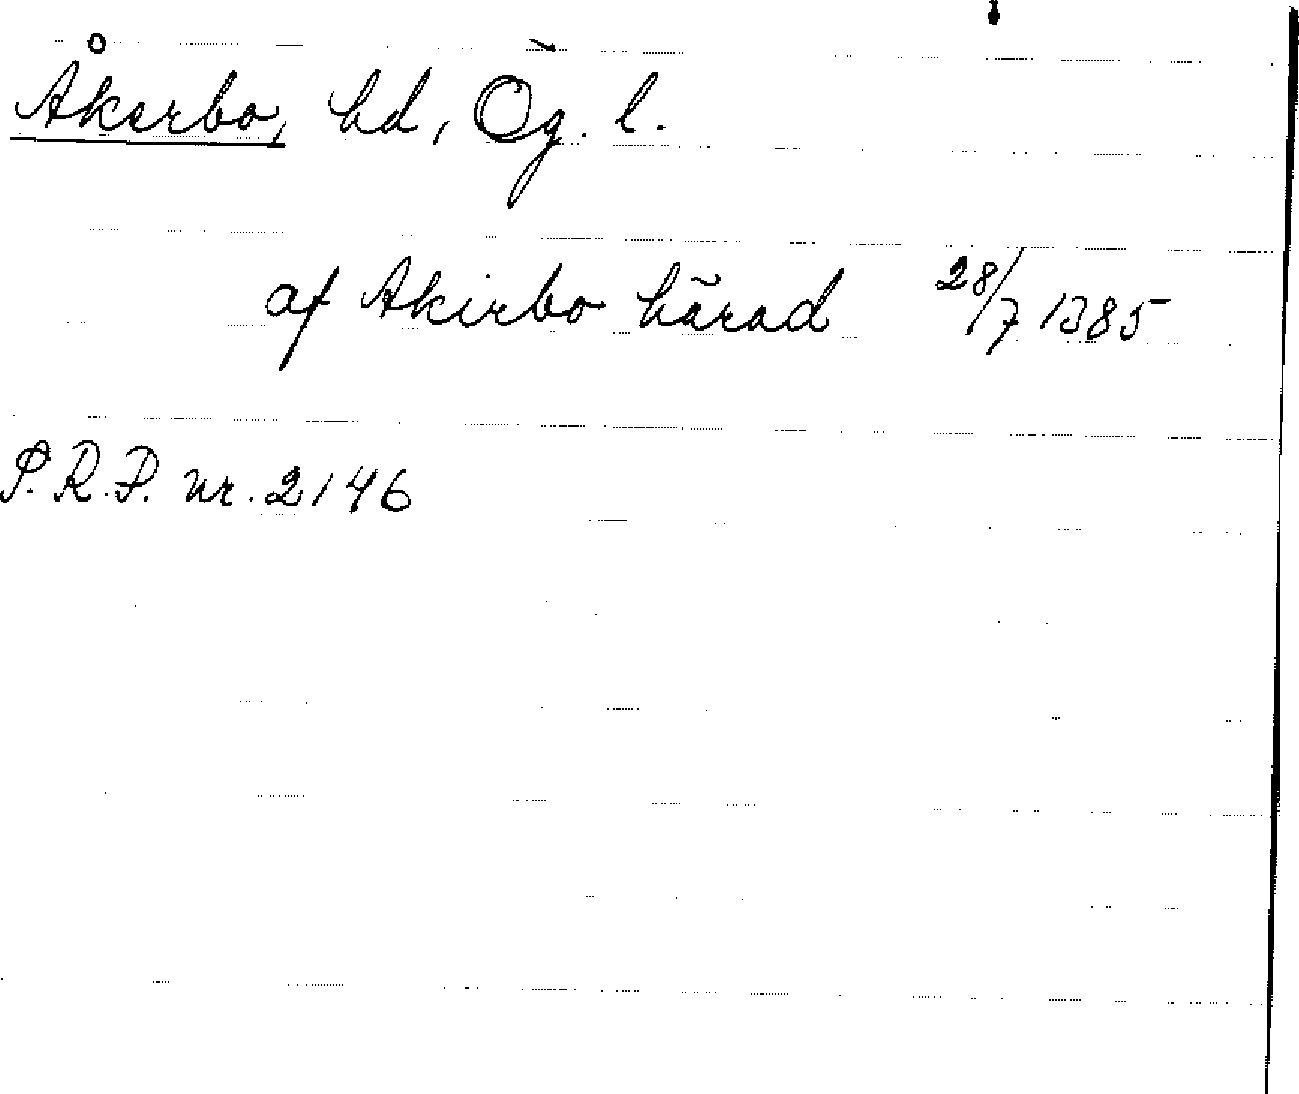 Åkerbo, hd, Ög. l.
af Akirbo härad 28/7 1385
P. R. P. nr. 2146